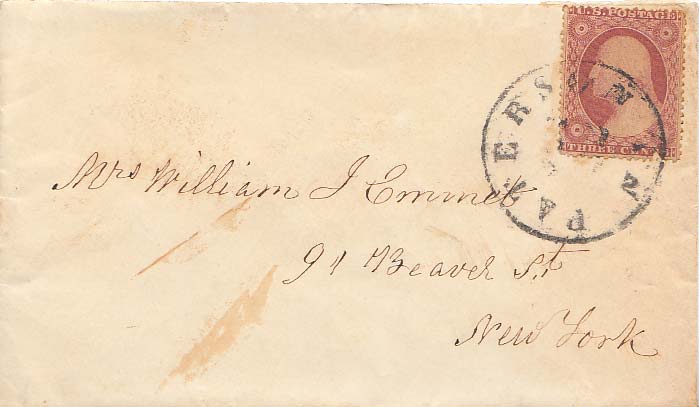 U.S. POSTAGE
THREE CENTS
Mrs William J Emmet
91 Beaver St
New York